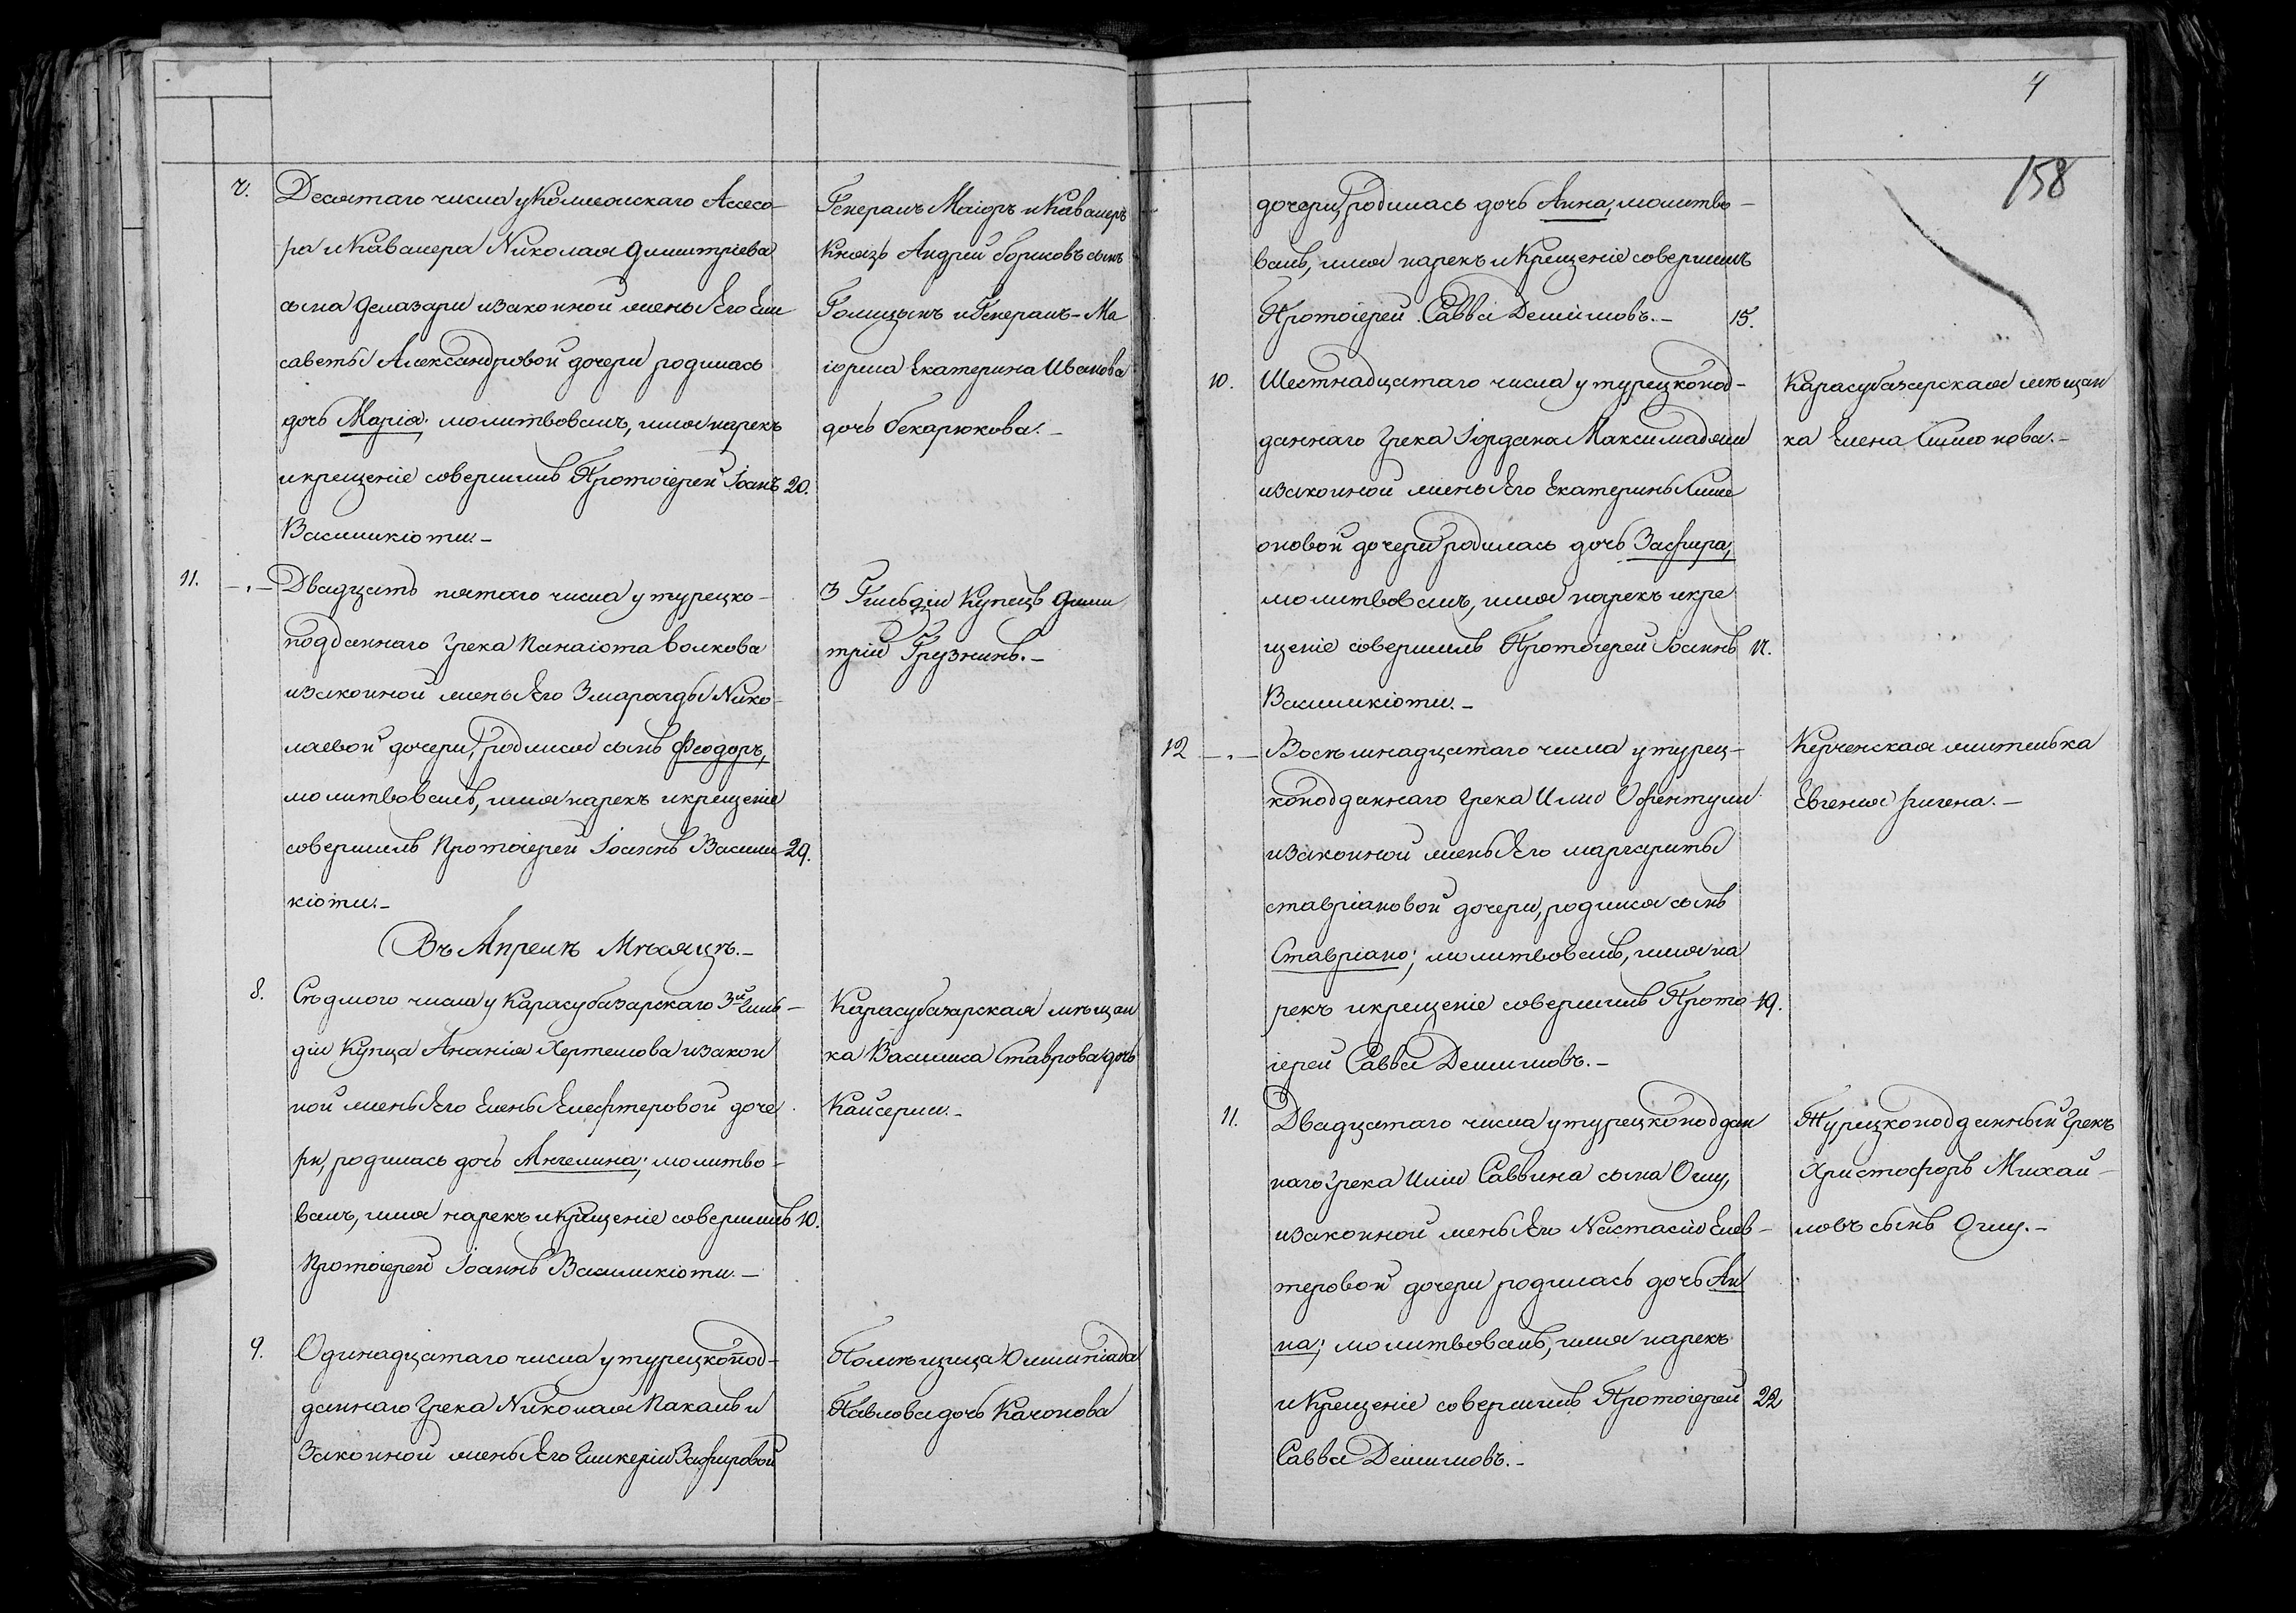 7.
Десятаго числа у Коллежскаго Ассесо-
ра и Кавалера Николая Димитріева
сына Делазари и законной жены Его Ели
саветы Александровой дочери родилась
дочь Марія; молитвовалъ, имя нарекъ
и крещеніе совершилъ Протоіерей Іоанъ 20.
Василикіоти.-
Генералъ Маіоръ и Кавалеръ
Князь Андрей Борисовъ сынъ
Голицынъ и Генералъ-Ма
іорша Екатерина Иванова
дочь Бекарюкова.-
11. -„- Двадцать пятаго числа у турецко-
подданнаго Грека Панаіота Волкова
и законной жены Его Змарагды Нико-
лаевой дочери, родился сынъ Феодоръ,
молитвовалъ, имя нарекъ и крещеніе
совершилъ Протоіерей Іоаннъ Васили- 29.
кіоти.-
3 Гильдіи Купецъ Дими
трій Грузинъ.-
Въ Апрелѣ Мѣсяцѣ.-
8. Сѣдмого числа у Карасубазарскаго 3й Гиль-
діи Купца Ананія Хертешова и закон
ной жены Его Елены Елефтеровой доче
ри, родилась дочь Ангелина; молитво-
валъ, имя нарекъ и крещеніе совершилъ 10.
Протоіерей Іоаннъ Василикіоти.-
Карасубазарская мѣщан
ка Василиса Ставрова дочь
Кайсерли.-
9. Одинадцатаго числа у турецкопод-
даннаго Грека Николая Пакалы и
Законной жены Его Гликеріи Зафировой
Помѣщица Олимпіада
Павлова дочь Качонова
4
158
дочери, родилась дочь Анна, молитво-
валъ, имя нарекъ и Крещеніе совершилъ
Протоіерей Савва Делимовъ.- 15.
10. Шестнадцатаго числа у турецкопод-
даннаго Грека Іордана Максимаджи
и законной жены Его Екатерины Симе
оновой дочери родилась дочь Зафира;
молитвовалъ, имя нарекъ и кре
щеніе совершилъ Протоіерей Іоаннъ 17.
Василикіоти.-
Карасубазарская мѣщан
ка Елена Симонова.-
12 -„- Восѣмнадцатаго числа у турец-
коподданнаго Грека Иліи Офентули
и законной жены Его Маргариты
Ставріановой дочери, родился сынъ
Ставріано; молитвовалъ, имя на
рекъ и крещеніе совершилъ Прото 19.
іерей Савва Делимовъ.-
Керченская жителька
Евгенія Фигена.-
11. Двадцатаго числа у турецкоподдан
наго Грека Иліи Саввина сына Оглу,
и законной жены Его Настасіи Елев-
теровой дочери родилась дочь Ан
на; молитвовалъ, имя нарекъ
и Крещеніе совершилъ Протоіерей 22
Савва Делимовъ.-
Турецкоподданный Грекъ
Христофоръ Михай-
ловъ сынъ Оглу.-